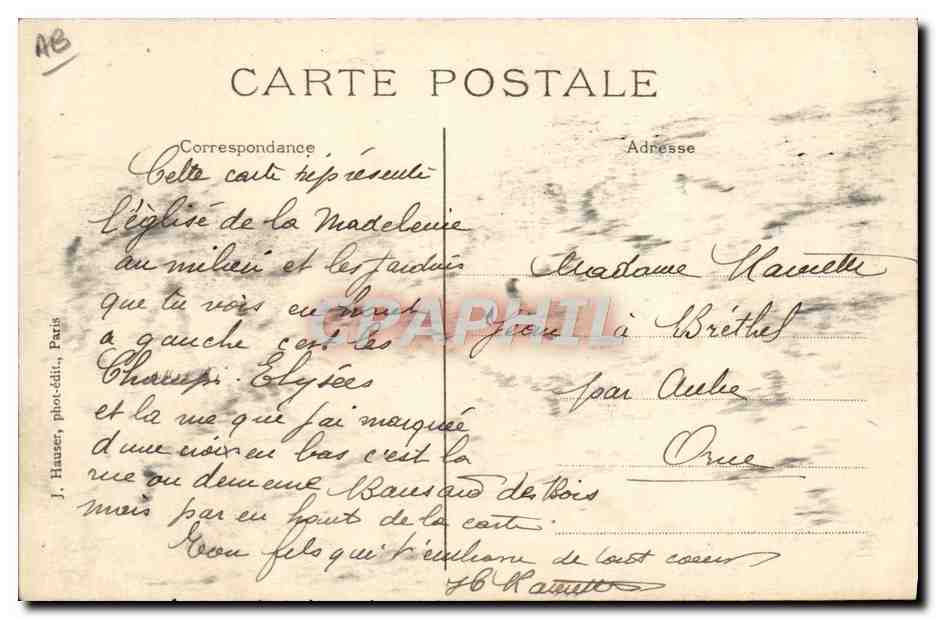 AB
CARTE POSTALE
Correspondance
Cette carte représente
l'église de la Madeleine
au milieu et les Jardins
que tu vois en haut
a gauche c'est les
Champs. Elysées
et la rue que j'ai marquée
d'une croix en bas c'est la
rue ou demeure des Bois
mais par en haut de la carte.
Ton fils qui t'embrasse de tout coeur
Adresse
Madame
à Bréthel
par Aube
Orne
J. Hauser, phot-édit., Paris
CPAPHIL